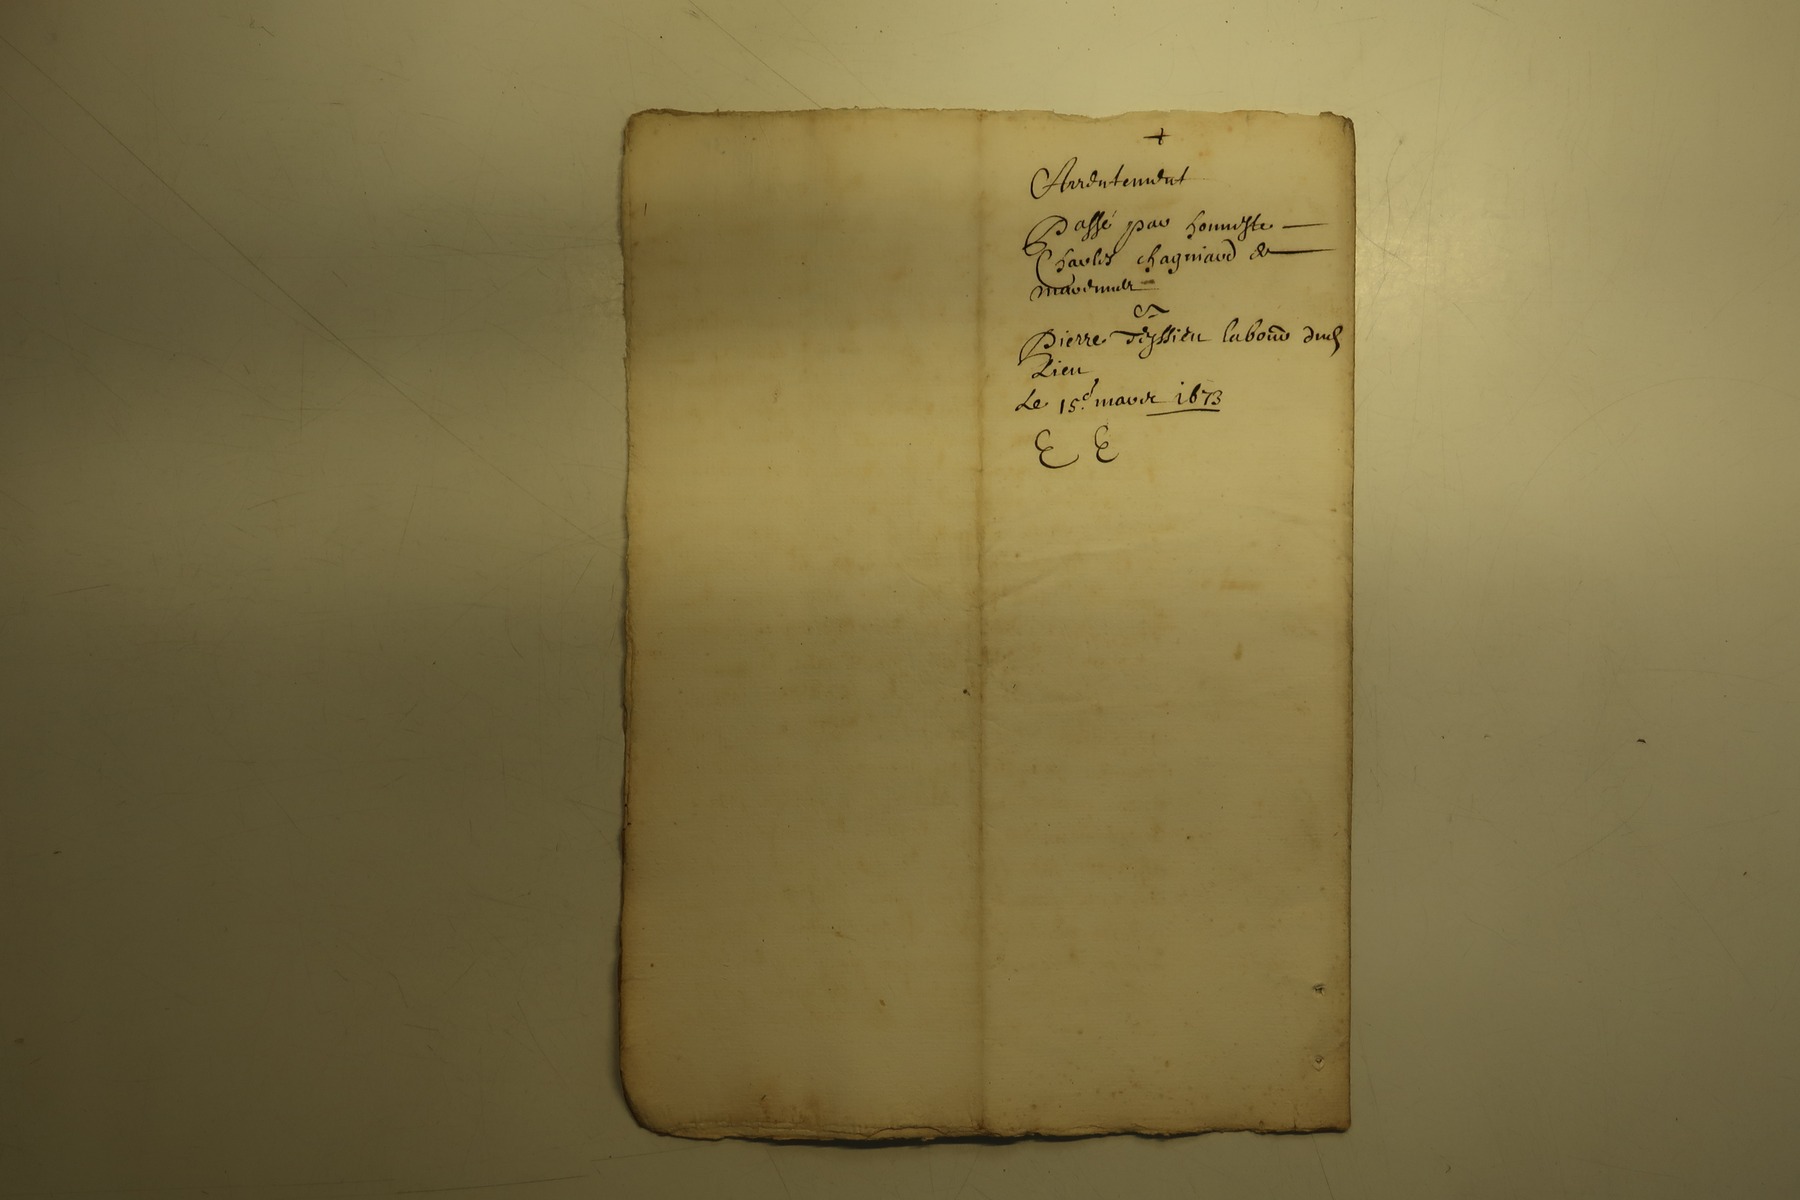 +
Arrentement
Passé par honneste
Charles chagniard de
A
Pierre Teyssieu labour dud
Lieu
Le 15e mars 1673
E E